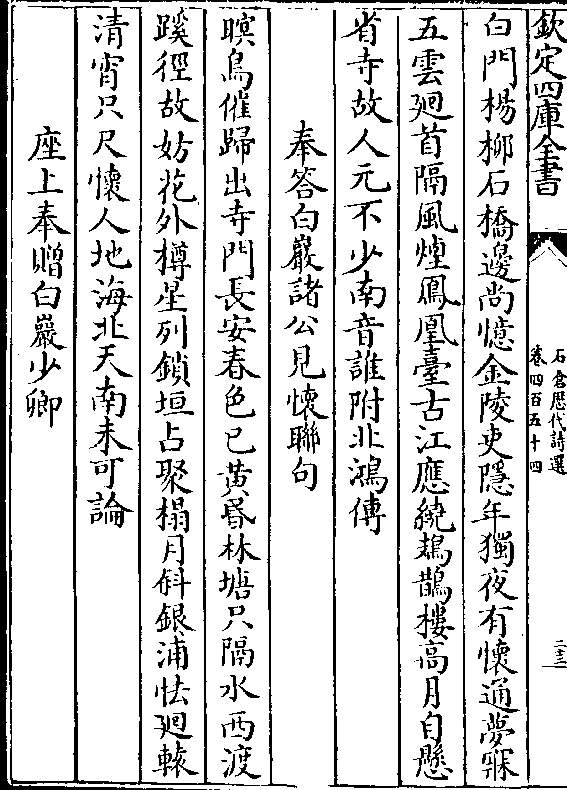 欽定四庫全書
石倉歷代詩選
卷四百五十四
二十三
白門楊柳石橋邊尚憶金陵吏隱年獨夜有懷通夢寐
五雲廻首隔風煙鳳凰臺古江應繞鳷鵲樓高月自懸
省寺故人元不少南音誰附北鴻傳
奉答白巖諸公見懷聯句
暝鳥催歸出寺門長安春色已黃昏林塘只隔水西渡
蹊徑故妨花外樽星列鎖垣占聚榻月斜銀浦怯廻轅
清宵只尺懷人地海北天南未可論
座上奉贈白巖少卿